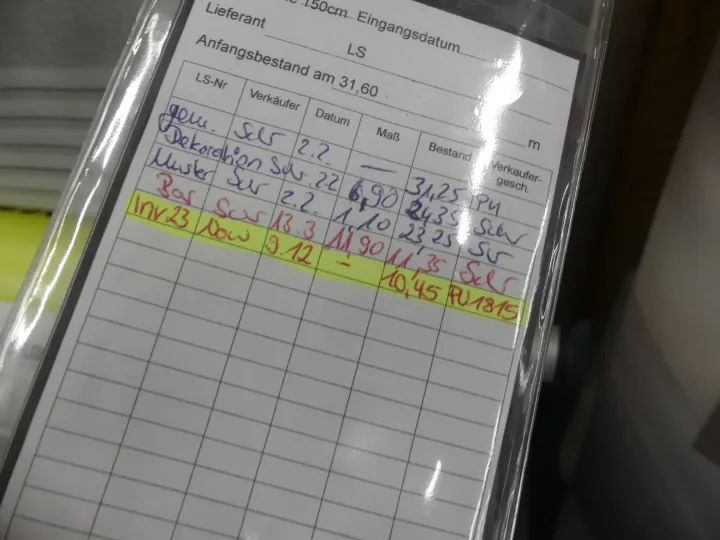 150cm Eingangsdatum
Lieferant
LS
Anfangsbestand am 31,60 m
LS-Nr Verkäufer Datum Maß Bestand Verkäufer-gesch.
gem. Sdr 2.2. — 31,25 PU
Dekoration Sdr 22 6,90 24,35 Sdr
Muster Sdr 2.2. 1,10 23,25 Sdr
Bar Sdr 13.3 11,90 11,35 Sdr
Inv 23 Now 9.12 – 10,45 PU 1815